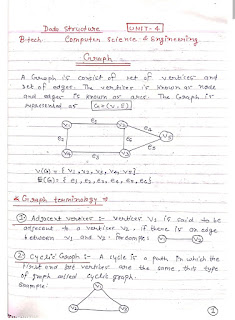 Data Structure UNIT-4
B.tech Computer Science & Engineering
Graph
A Graph is consist of set of vertices and
set of edges. The vertices is known as node
and edges is known as arcs. The Graph is
represented as G=(V,E)
V1 e1 V2 e4
V5
e2 e5
V3 e3 V4
V(G) = { V1, V2, V3, V4, V5}
E(G) = { e1, e2, e3, e4, e5, e6}
* Graph terminology →
① Adjacent vertices :- vertices V1 is said to be
adjacent to a vertices V2, if there is an edge
between V1 and V2. for example: V1 V2
② Cyclic Graph :- A cycle is a path in which the
first and last vertices are the same, this type
of graph called cyclic graph.
Example:
V1
V2 V3
①